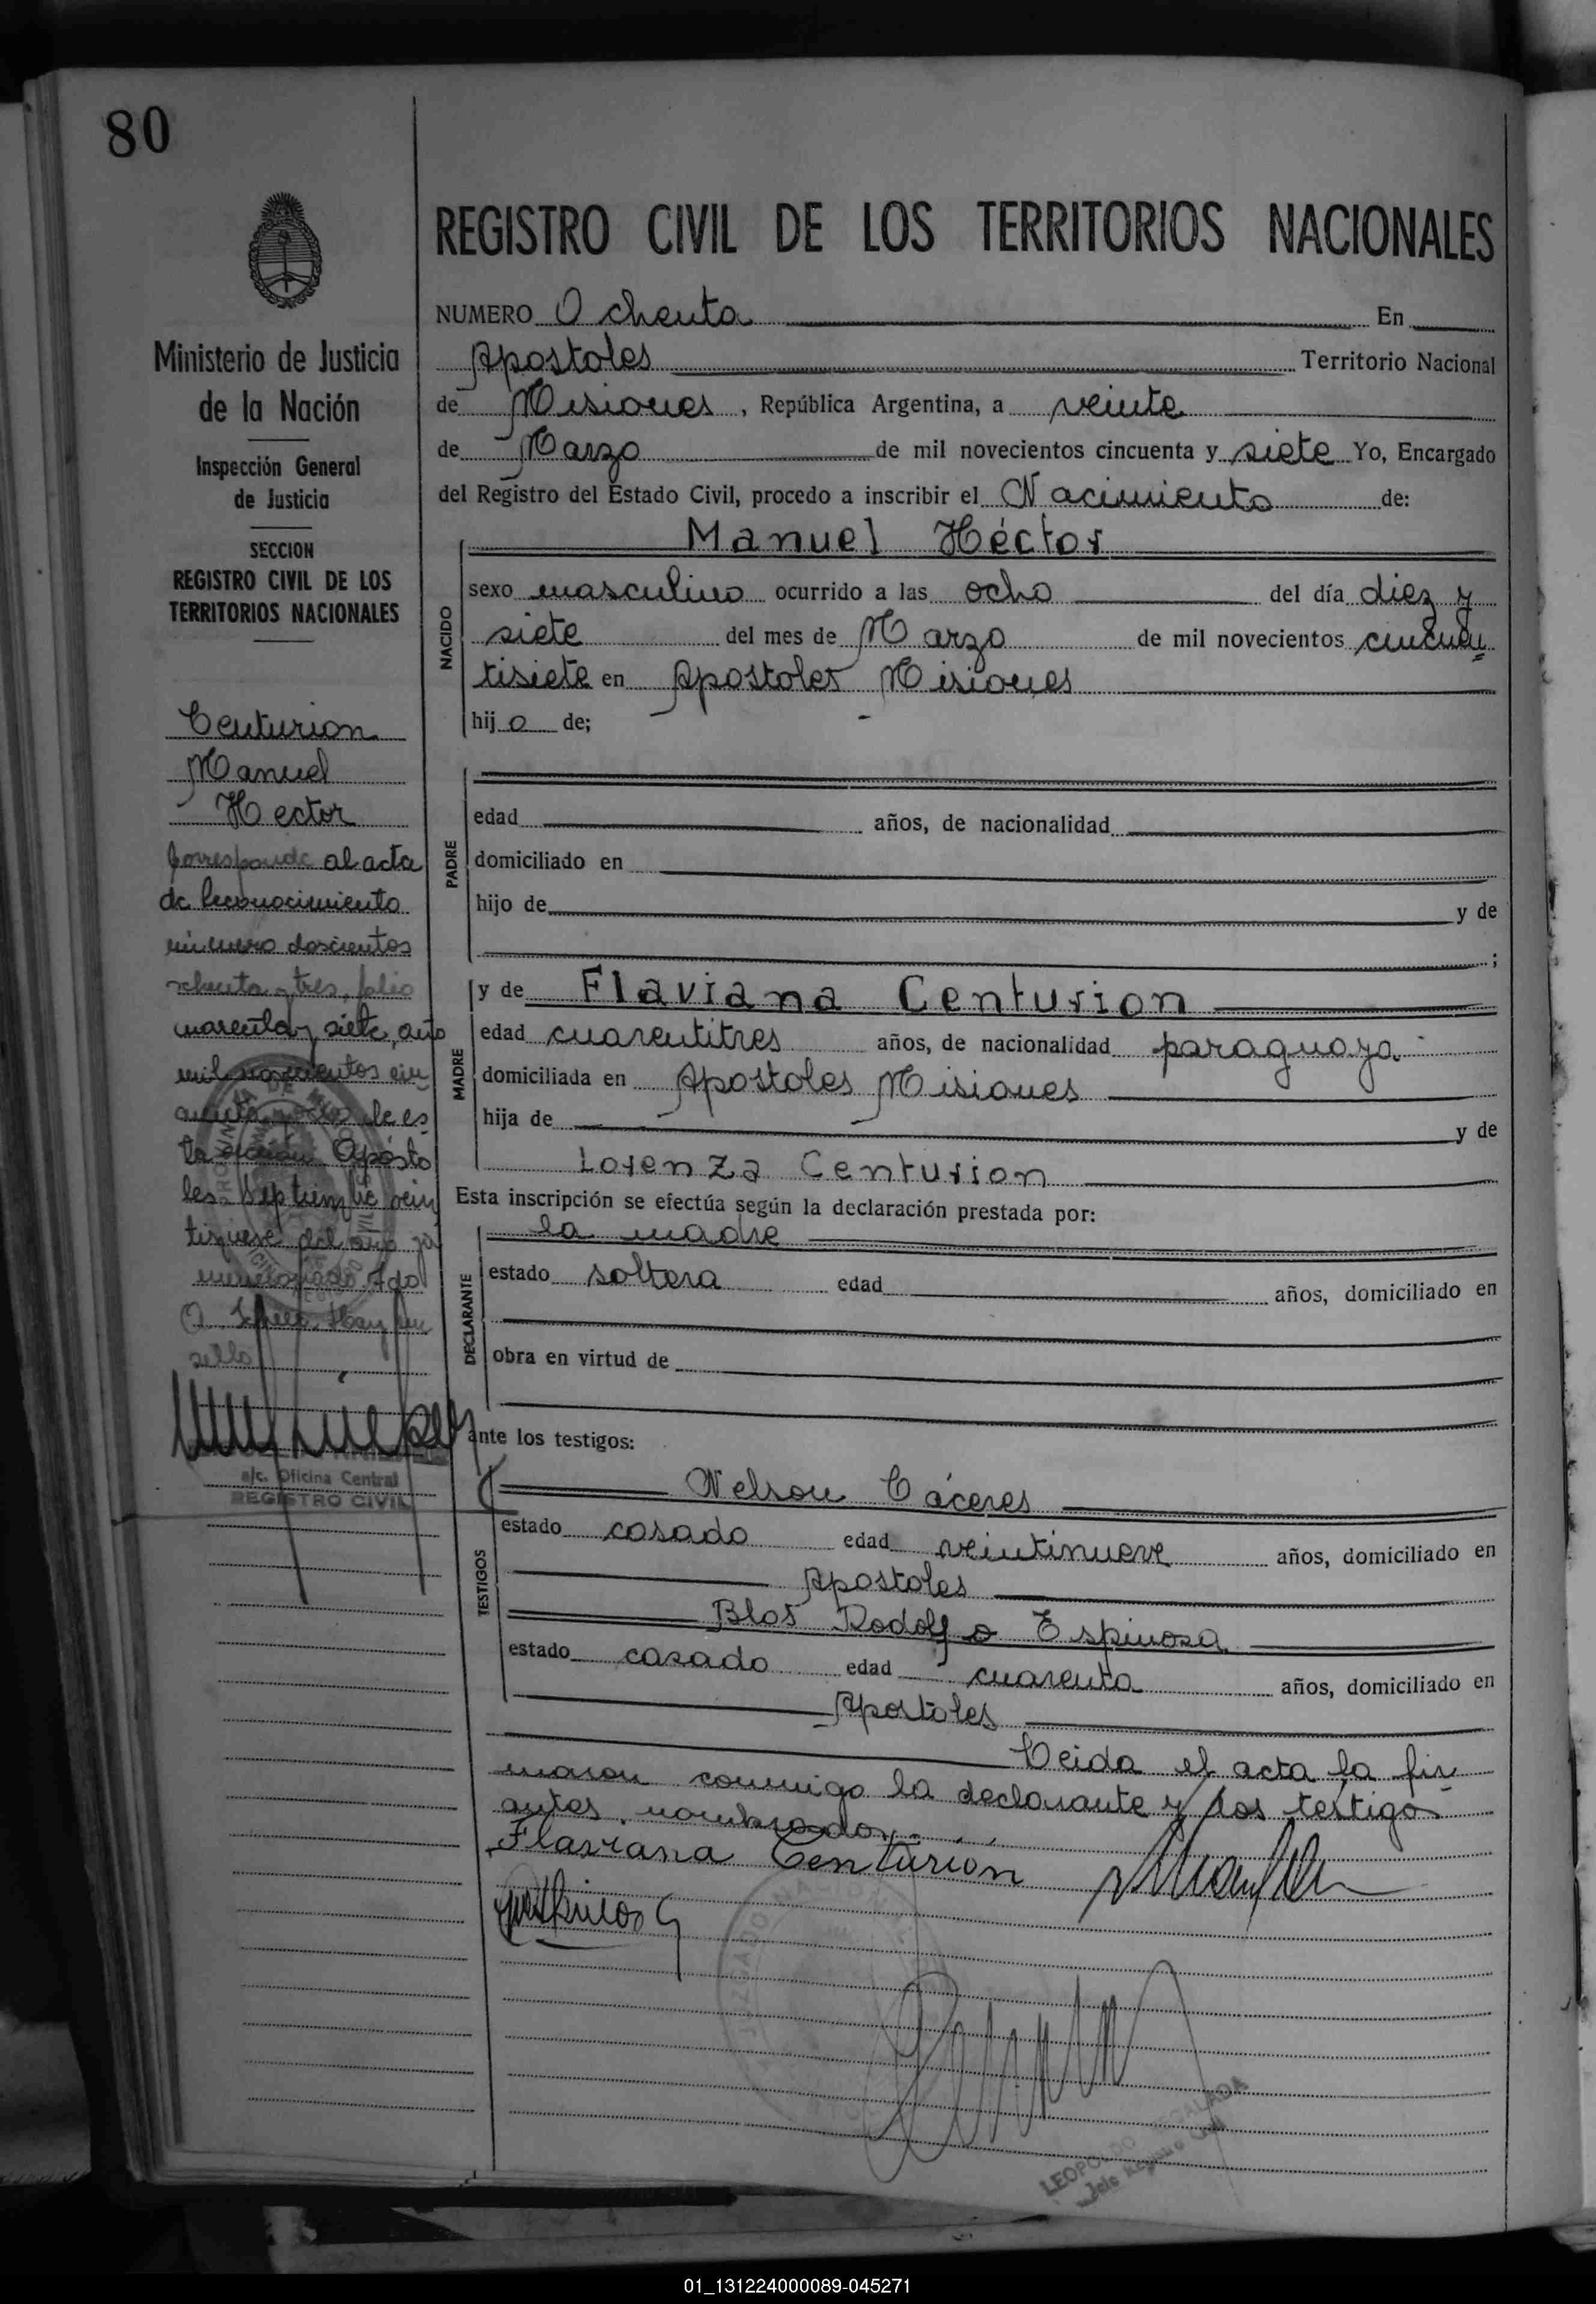 80
Ministerio de Justicia
de la Nación
Inspección General
de Justicia
SECCION
REGISTRO CIVIL DE LOS
TERRITORIOS NACIONALES
Centurion
Manuel
Hector
Corresponde al acta
de Reconocimiento
número doscientos
ochenta y tres, folio
cuarenta y siete, año
mil novecientos cin
cuenta y ocho de es-
ta sección Apósto
les. Septiembre vein
tinueve del año ya
mencionado. Fdo
Hay un
sello
a/c. Oficina Central
REGISTRO CIVIL
REGISTRO CIVIL DE LOS TERRITORIOS NACIONALES
NUMERO Ochenta En
Apostoles Territorio Nacional
de Misiones, República Argentina, a veinte
de Marzo de mil novecientos cincuenta y siete Yo, Encargado
del Registro del Estado Civil, procedo a inscribir el Nacimiento de:
Manuel Héctor
NACIDO
sexo masculino ocurrido a las ocho del día diez y
siete del mes de Marzo de mil novecientos cincuen=
tisiete en Apostoles Misiones
hijo de;
PADRE
edad años, de nacionalidad
domiciliado en
hijo de y de
;
MADRE
y de Flaviana Centurion
edad cuarentitres años, de nacionalidad paraguaya
domiciliada en Apostoles Misiones
hija de y de
Lorenza Centurion
Esta inscripción se efectúa según la declaración prestada por:
DECLARANTE
la madre
estado soltera edad años, domiciliado en
obra en virtud de
ante los testigos:
TESTIGOS
Nelson Cáceres
estado casado edad veintinueve años, domiciliado en
Apostoles
Blas Rodolfo Espinosa
estado casado edad cuarenta años, domiciliado en
Apostoles
Leida el acta la fir-
maron conmigo la declarante y los testigos
antes nombrados
Flaviana Centurión
LEOPOLDO
Jefe Registro Civil
01_131224000089-045271